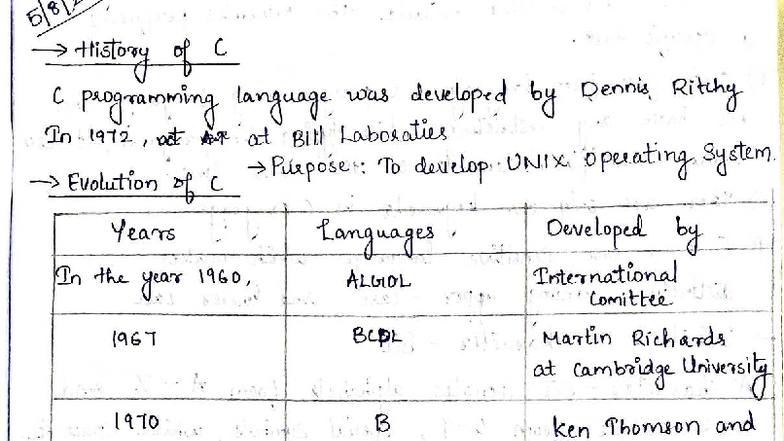 5/8/
→ History of C
C programming language was developed by Dennis Ritchy
In 1972, at Bill Laboraties
→ Purpose: To develop UNIX Operating System.
→ Evolution of C
Years Languages Developed by
In the year 1960, ALGOL International
Comittee
1967 BCPL Martin Richards
at Cambridge University
1970 B Ken Thomson and